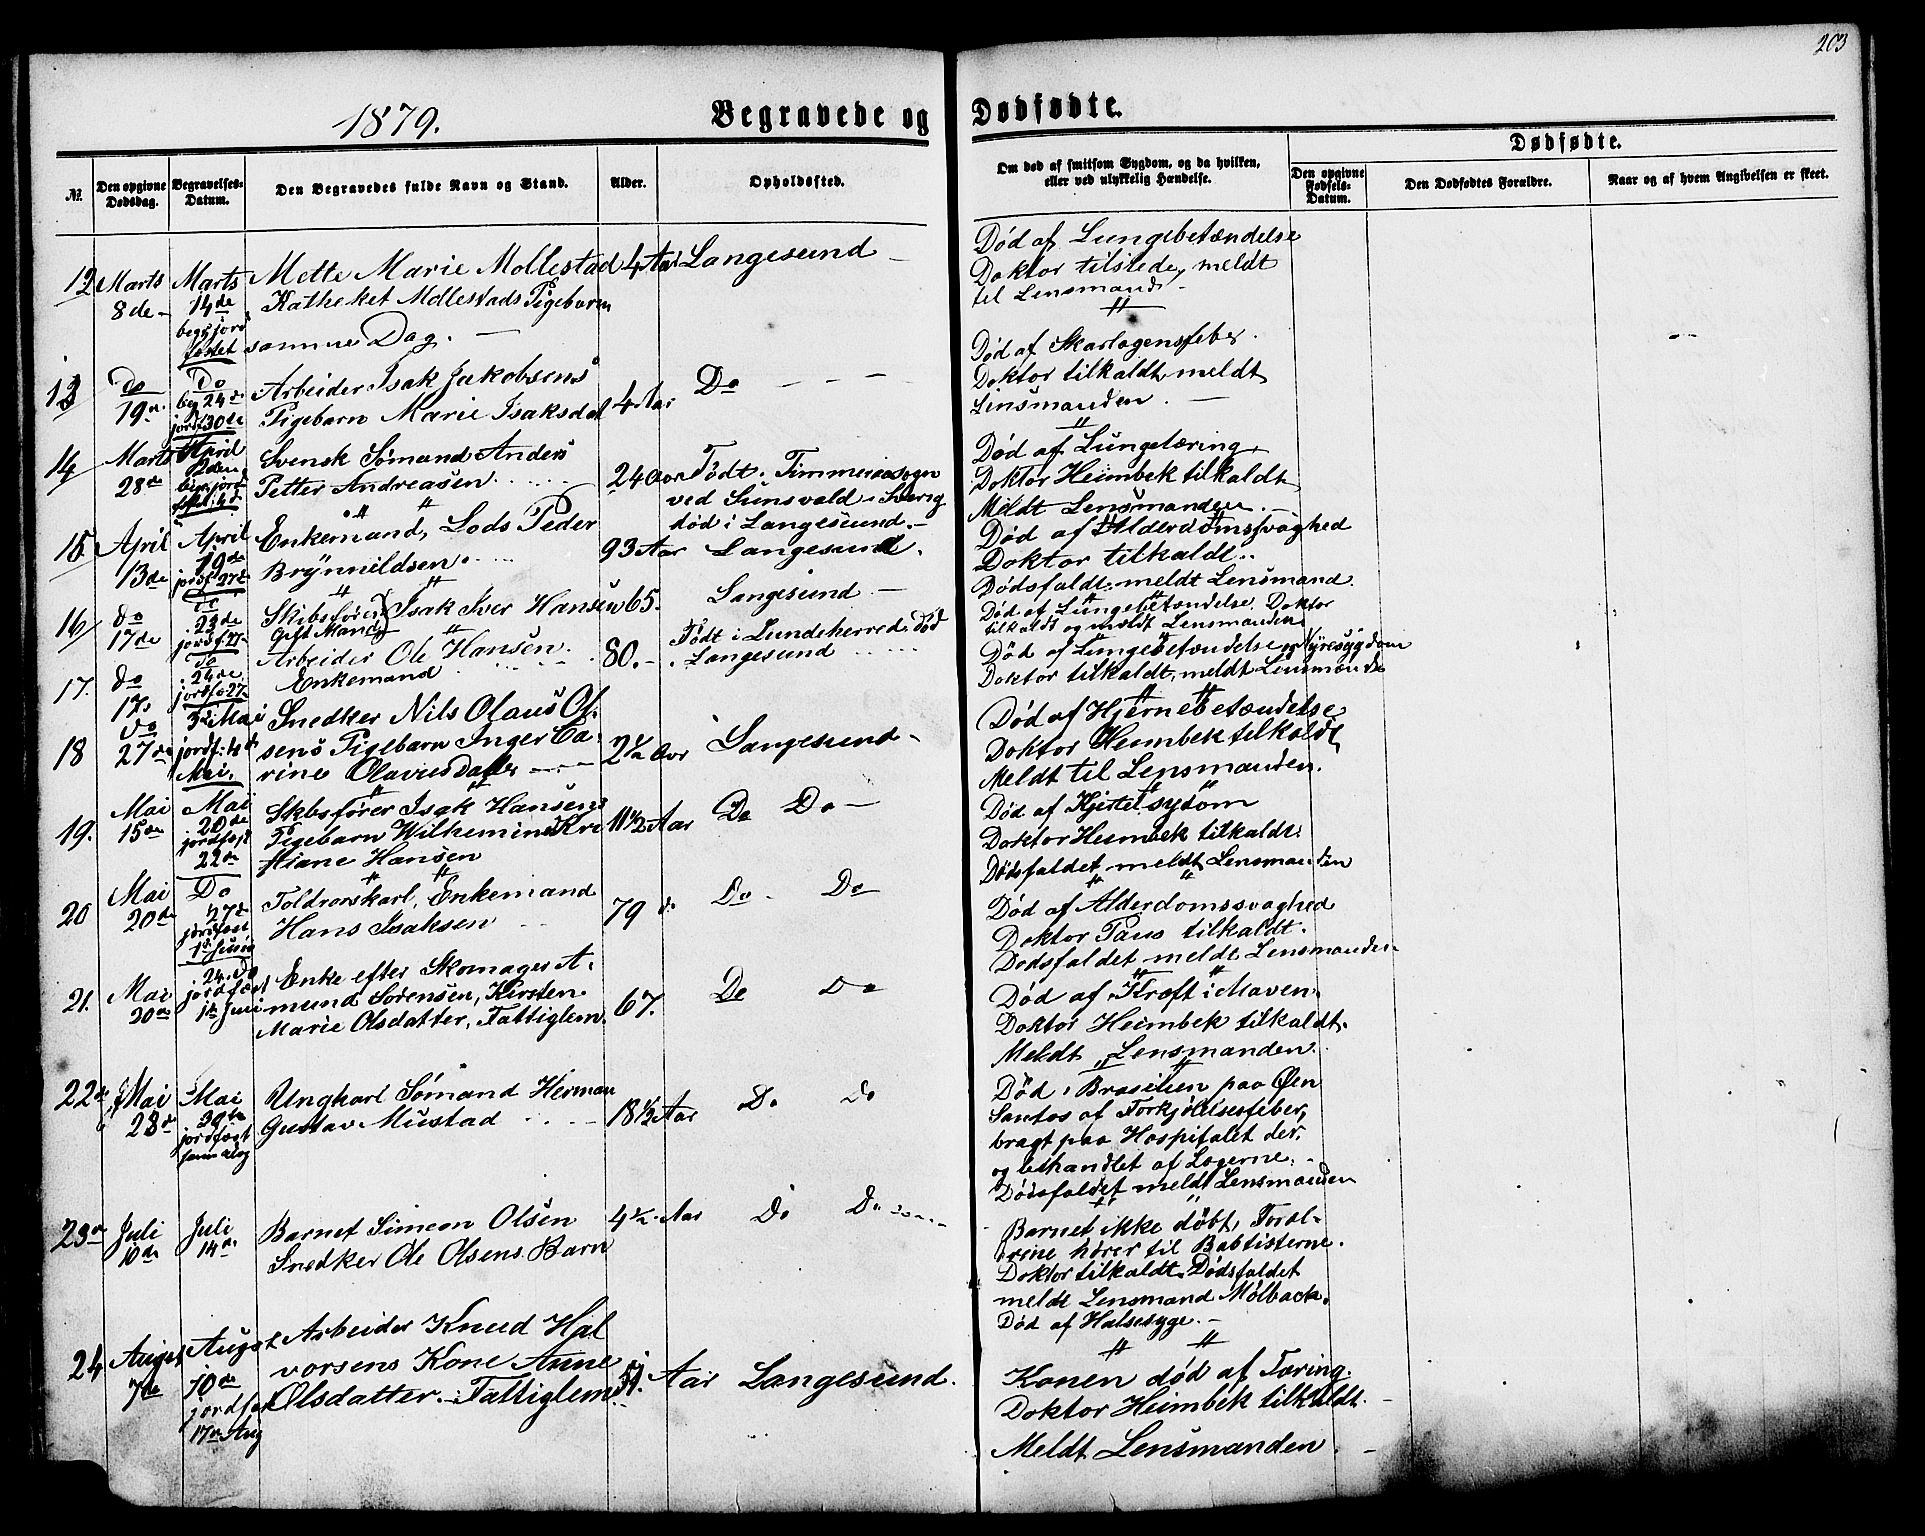 203
1879.
Begravede og Dødfødte.
No.
Den opgivne Dødsdag.
Begravelses-Datum.
Den Begravedes fulde Navn og Stand.
Alder.
Opholdssted.
Om død af smitsom Sygdom, og da hvilken, eller ved ulykkelig Hændelse.
Dødfødte.
Den opgivne Fødsels-Datum.
Den Dødfødtes Forældre.
Naar og af hvem Angivelsen er skeet.
12 Marts Marts Mette Marie Mollestad 4 Aar Langesund
8de 14de Katheket Mollestads Pigebarn
jordfestet samme Dag.
Død af Lungebetændelse
Doktor tilstede, meldt
til Lensmand
13 Do Do Arbeider Isak Jakobsens 4 Aar Do
19de beg 24de jordf 30de Pigebarn Marie Isaksdat
Død af Skarlagensfeber.
Doktor tilkaldt meldt
Linsmanden.
14 Marts April Svensk Sømand Anders 24 Aar Født i Timmeraasogn
28de 2den Petter Andreasen ved Sunsvald i Sverig
død i Langesund.
Død af Lungetæring
Doktor Heimbek tilkaldt
Meldt Lensmanden.
15 April April Enkemand, Lods Peder 93 Aar Langesund.
13de 19de jordf 27de Brynnildsen.
Død af Alderdomssvaghed
Doktor tilkaldt.
Dødsfaldt meldt Lensmand
16 do do Skibsfører Isak Iver Hansen 65. Langesund
17de 23de jordf 27. Gift Mand
Død af Lungebetændelse. Doktor
tilkaldt og meldt Lensmanden
17. do do Arbeider Ole Hansen. 80. Født i Lundeherred. Død
17de 24de jordfe 27. Enkemand i Langesund
Død af Lungebetændelse og Nyresygdom
Doktor tilkaldt, meldt Linsmande
18 do 3de Mai Snedker Nils Olaus Ol- 2½ Aar Langesund
27de jordf: 4de Mai. sens Pigebarn Inger Ca-
rine Olavesdatter
Død af Hjernebetændelse
Doktor Heimbek tilkaldt
Meldt til Lensmanden.
19. Mai Mai Skbsfører Isak Hansens 11½ Aar Do Do
15de 20de jordfest 22de Pigebarn Wilhemine Kri
stiane Hansen
Død af Kjertelsygdom
Doktor Heimbek tilkaldt
Dødsfaldet meldt Lensmanden
20 Mai Do Toldrorskarl, Enkemand 79 do Do Do
20de 27de jordfest 1ste Juni Hans Isaksen
Død af Alderdomssvaghed
Doktor Paus tilkaldt.
Dødsfaldet meldt Lensmanden
21. Mai 24. Do Enke efter Skomager A- 67. Do Do
20de jordfæst 1ste Juni mund Sørensen, Kirsten
Marie Olsdatter, Fattiglem.
Død af Kræft i Maven.
Doktor Heimbek tilkaldt.
Meldt Lensmanden.
22de Mai Mai Ungkarl Sømand Herman 18½ Aar Do Do
28de jordfæst Gustav Mustad
Død i Brasilien paa Øen
Santos af Forkjølelsesfeber,
bragt paa Hospitalet der,
og behandlet af Lægerne.
Dødsfaldet meldt Lensmanden
23de Juli Juli Barnet Simeon Olsen 4½ Aar Do Do
10de 14de Snedker Ole Olsens Barn
Barnet ikke døbt, Foræl-
drene hører til Babtisterne.
Doktor tilkaldt. Dødsfaldet
meldt Lensmand Mølback.
Død af Halsesyge.
24 August August Arbeider Knud Hal
7de 10de jordfæst 17de Aug vorsens Kone Anne 51. Aar Langesund.
Olsdatter. Fattiglem
Konen død af Tæring.
Doktor Heimbek tilkaldt.
Meldt Lensmanden